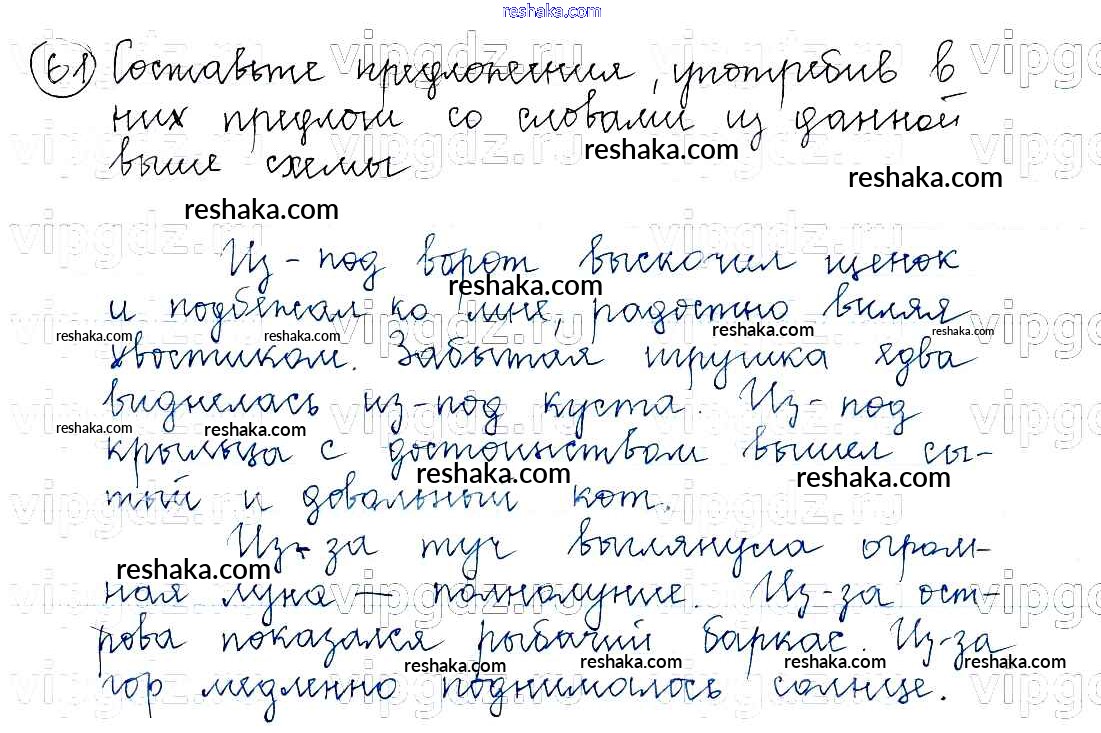 reshaka.com
61 Составьте предложения, употребив в
них предлоги со словами из данной
выше схемы
reshaka.com
reshaka.com
reshaka.com
Из-под ворот выскочил щенок
reshaka.com
и подбежал ко мне, радостно виляя
reshaka.com reshaka.com reshaka.com reshaka.com
хвостиком. Забытая игрушка едва
виднелась из-под куста. Из-под
reshaka.com reshaka.com
крыльца с достоинством вышел сы-
reshaka.com reshaka.com
тый и довольный кот.
Из-за туч выглянула огром-
reshaka.com
ная луна — полнолуние. Из-за ост-
рова показался рыбачий баркас. Из-за
reshaka.com reshaka.com reshaka.com reshaka.com
гор медленно поднималось солнце.
vipgdz.ru